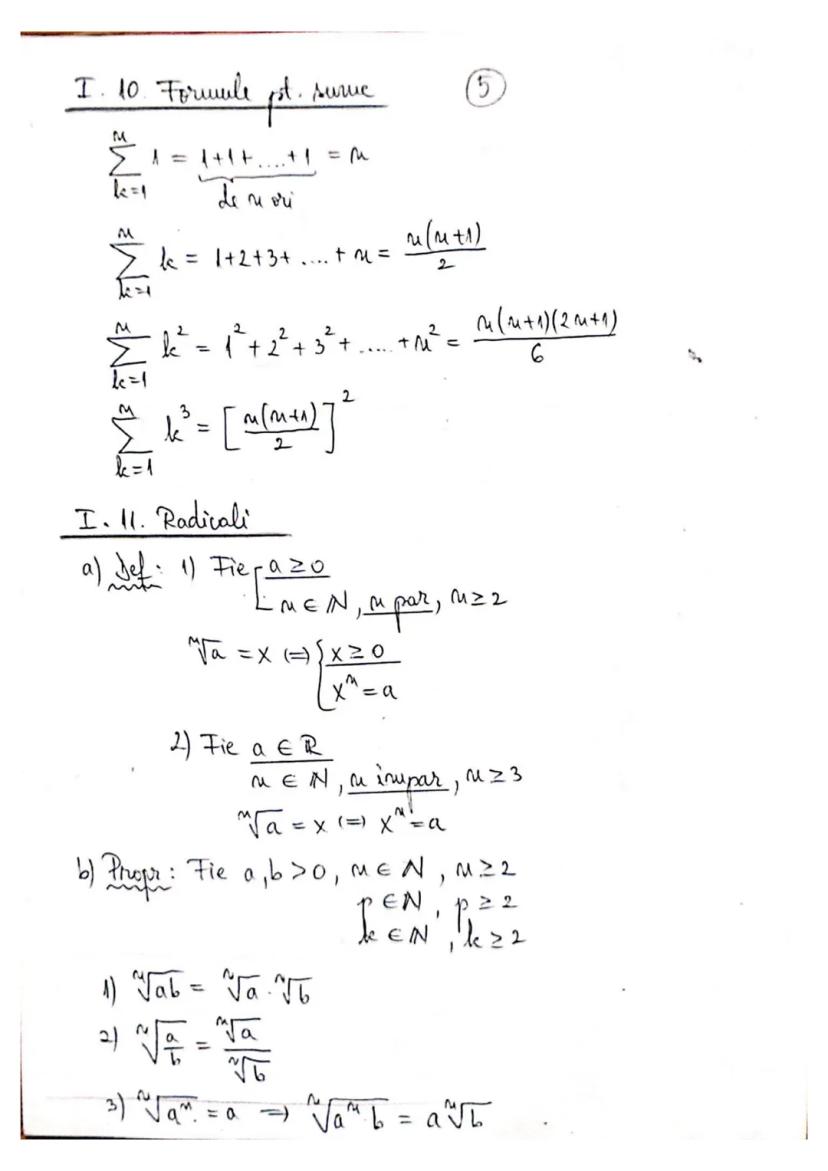 I. 10. Formule pt. sume 5
∑_{k=1}^{n} 1 = 1+1+....+1 = n
de n ori
∑_{k=1}^{n} k = 1+2+3+ .... + n = n(n+1)/2
∑_{k=1}^{n} k² = 1² + 2² + 3² + ..... + n² = n(n+1)(2n+1)/6
∑_{k=1}^{n} k³ = [n(n+1)/2]²
I. 11. Radicali
a) Def: 1) Fie a ≥ 0
n ∈ ℕ, n par, n ≥ 2
ⁿ√a = x (=) { x ≥ 0
xⁿ = a
2) Fie a ∈ ℝ
n ∈ ℕ, n impar, n ≥ 3
ⁿ√a = x (=) xⁿ = a
b) Propr: Fie a,b > 0, n ∈ ℕ, n ≥ 2
p ∈ ℕ, p ≥ 2
k ∈ ℕ, k ≥ 2
1) ⁿ√ab = ⁿ√a · ⁿ√b
2) ⁿ√(a/b) = ⁿ√a / ⁿ√b
3) ⁿ√aⁿ = a => ⁿ√(aⁿ·b) = a ⁿ√b